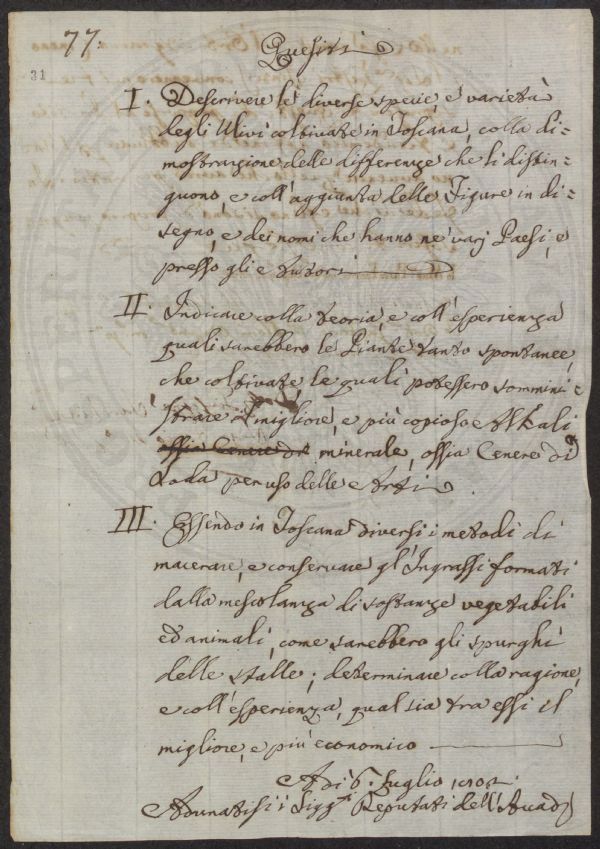 77.
31
Quesiti
I. Descrivere le diverse specie, e varietà
degli Ulivi coltivate in Toscana, colla di=
mostrazione delle differenze che li distin=
guono, e coll'aggiunta delle Figure in di=
segno, e dei nomi che hanno ne' varj Paesi, e
presso gli Autori
II. Indicare colla teoria, e coll'esperienza
quali sarebbero le Piante tanto spontanee,
che coltivate le quali potessero sommini=
strare il migliore, e più copioso Alkali
ossia Cenere di minerale, ossia Cenere di
Soda per uso delle Arti
III. Essendo in Toscana diversi i metodi di
macerare, e conservare gl'Ingrassi formati
dalla mescolanza di sostanze vegetabili
ed animali, come sarebbero gli spurghi
delle stalle; determinare colla ragione,
e coll'esperienza, qual sia tra essi il
migliore, e più economico
Adì 6. Luglio
Adunatisi i Sigg.ri Deputati dell'Accad